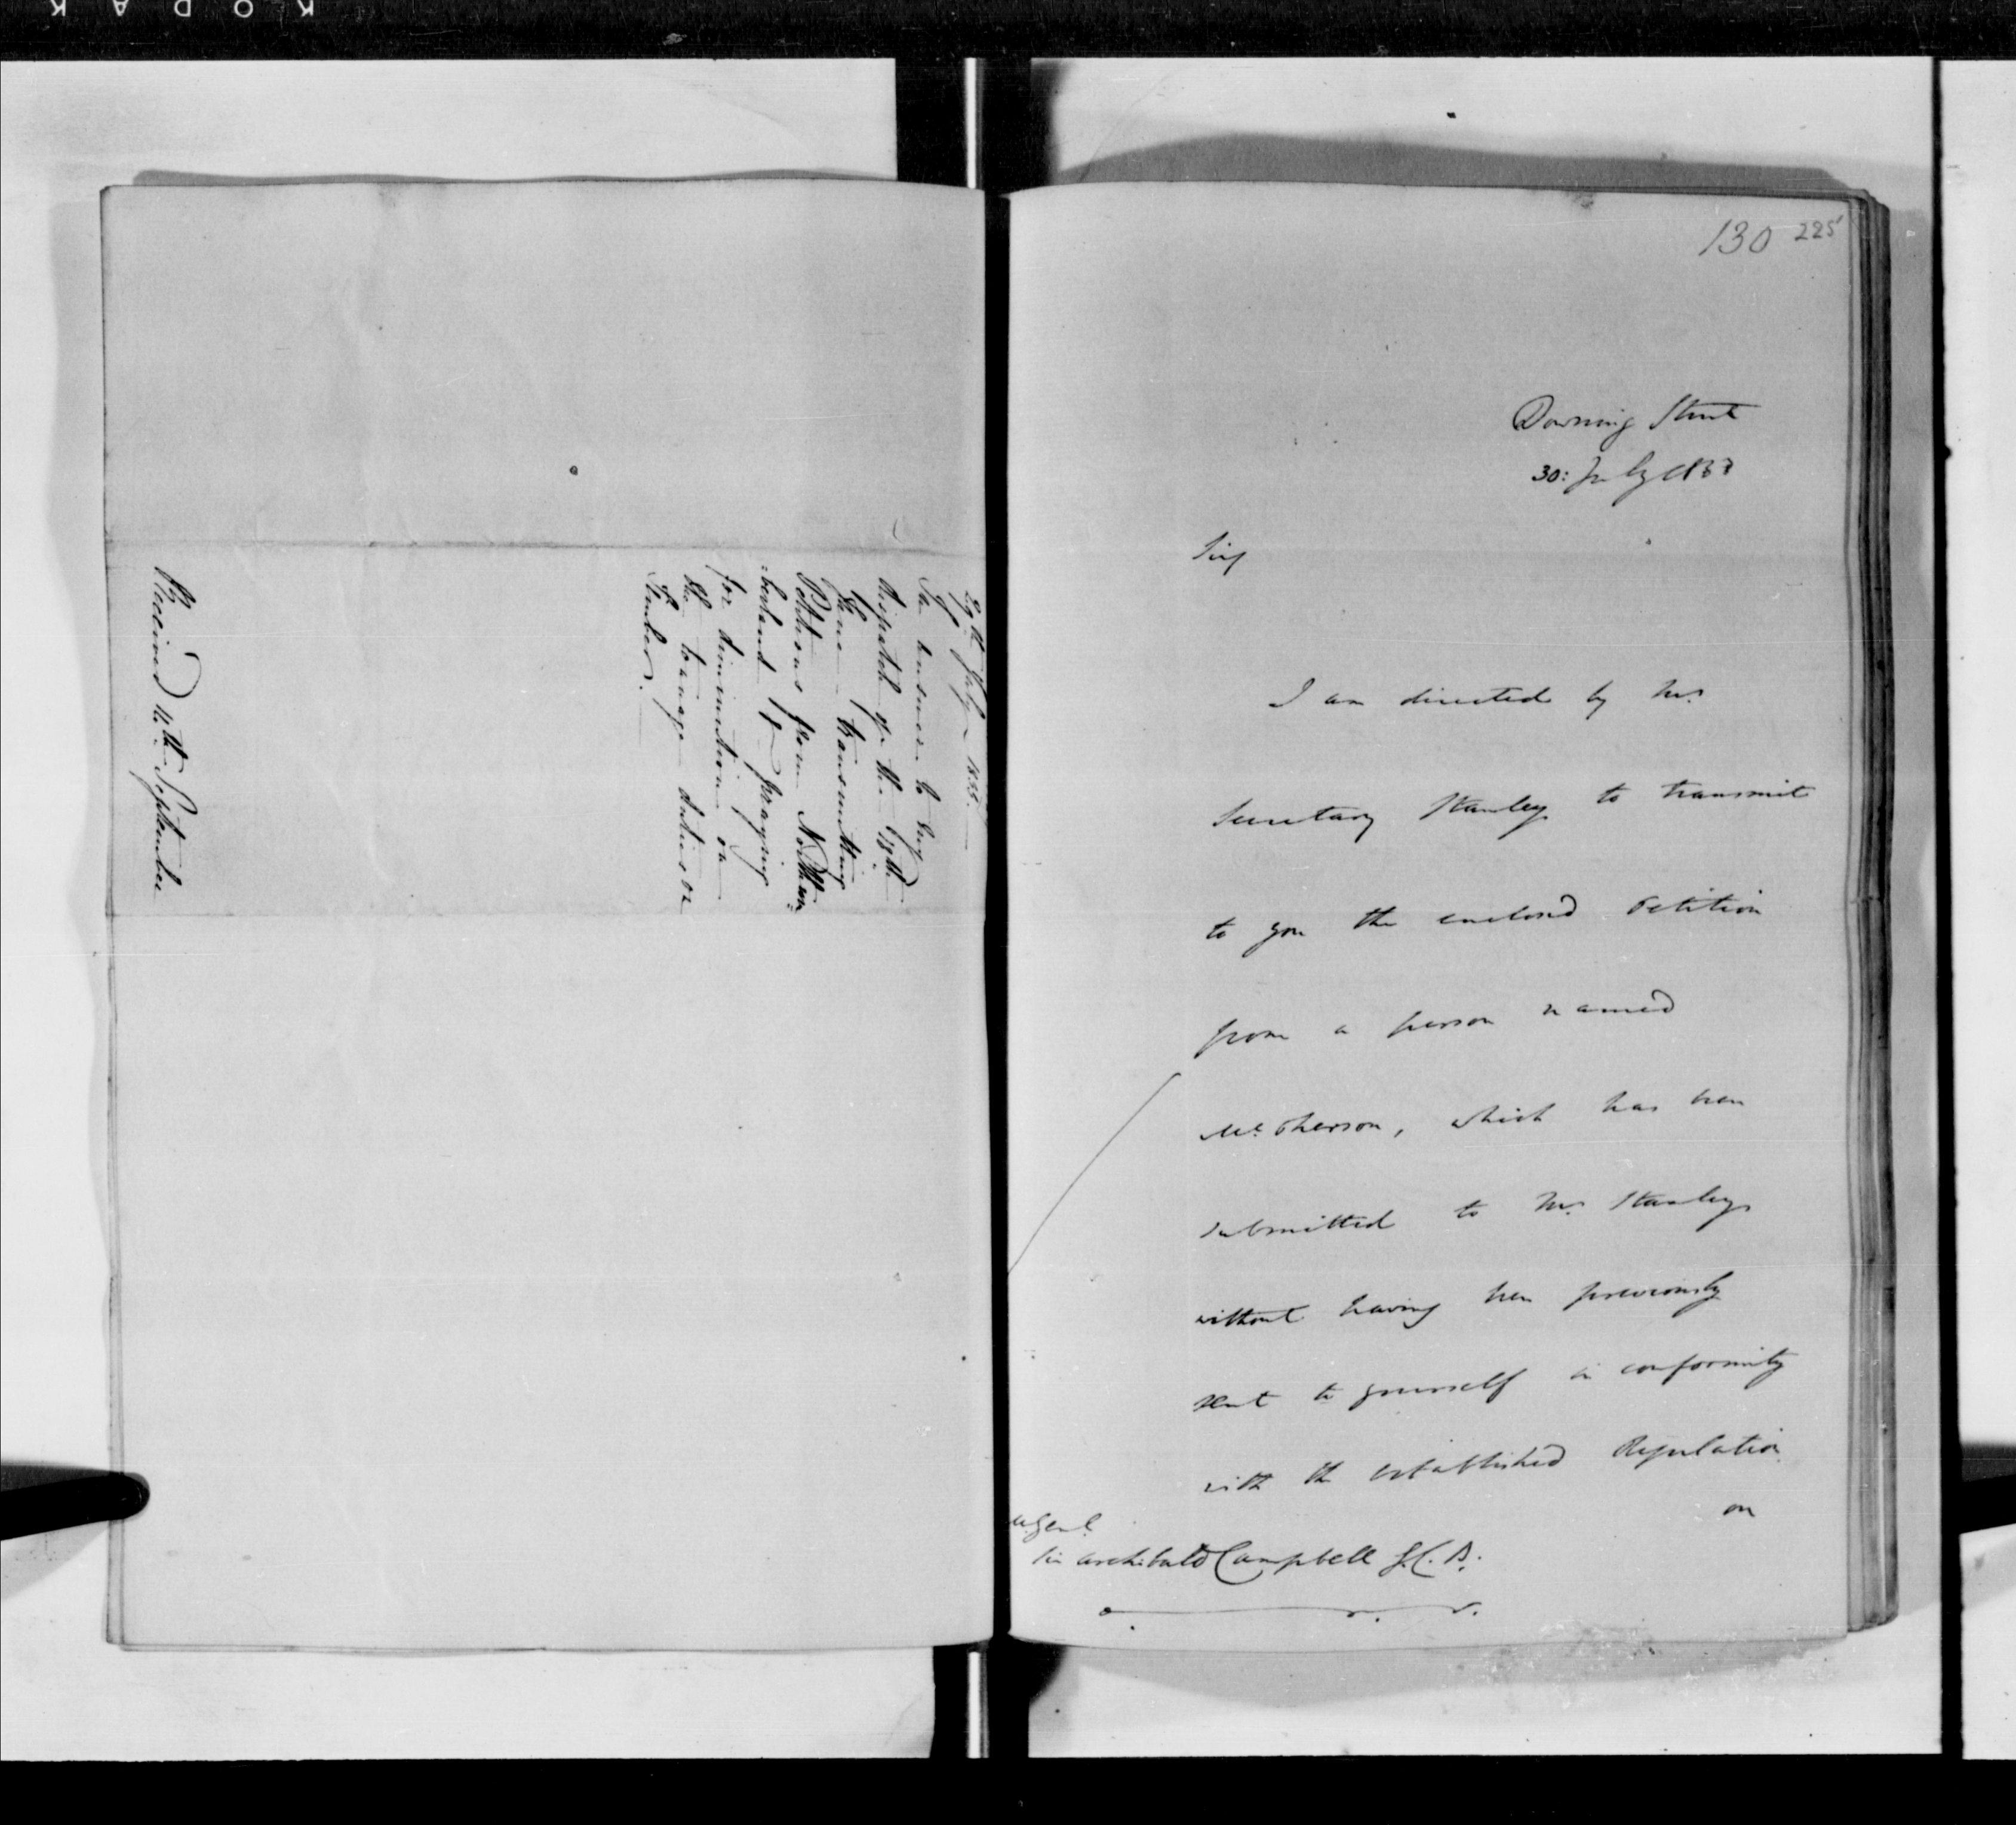 KODAK
29th July 1833.
In answer to my
dispatch of the 13th
June transmitting
Petitions from Northum-
:berland praying
for diminution on
the tonnage duties on
Timber.
Received 14th September
130 225
Downing Street
30: July 1833
Sir,
I am directed by Mr.
Secretary Stanley to transmit
to you the enclosed Petition
from a person named
McPherson, which has been
submitted to Mr. Stanley
without having been previously
sent to yourself in conformity
with the established Regulation
on
M. Genl.
Sir Archibald Campbell G.C.B.